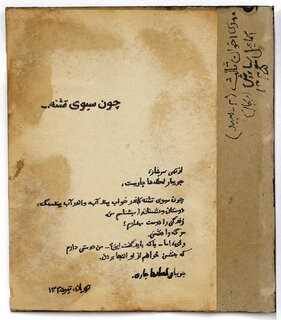 چون سبوی تشنه...
از تهی سرشار،
جویبار لحظه‌ها جاریست.
چون سبوی تشنه کاندر خواب بیند آب، واندر آب بیند سنگ،
دوستان و دشمنان را میشناسم من.
زندگی را دوست میدارم؛
مرگ را دشمن.
وای، اما - با که باید گفت این؟ - من دوستی دارم
که بدشمن خواهم از او التجا بردن.
جویبار لحظه‌ها جاری.
تهران،
مهدی اخوان ثالث (م. امید)